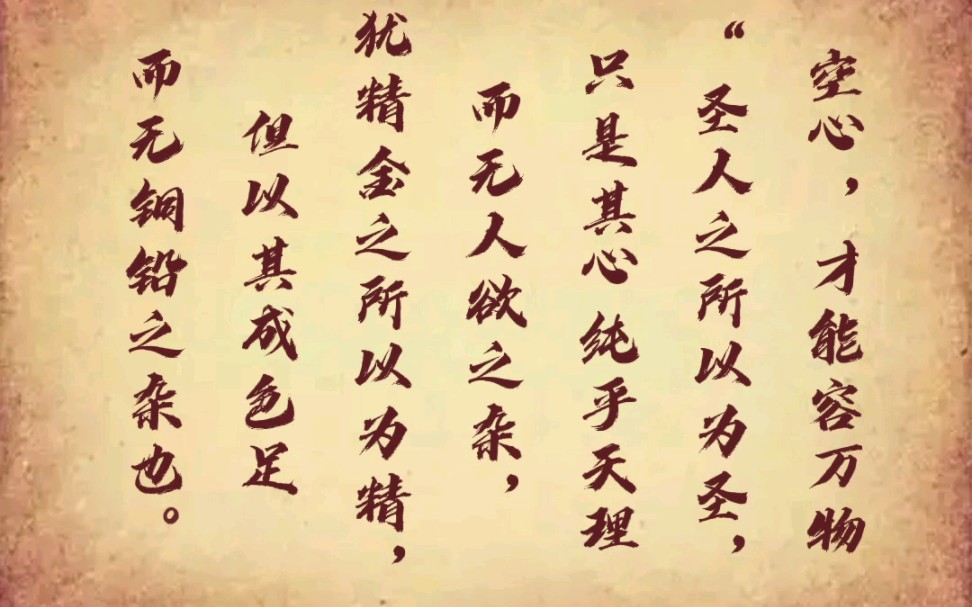 空心，才能容万物
“圣人之所以为圣，
只是其心纯乎天理
而无人欲之杂，
犹精金之所以为精，
但以其成色足
而无铜铅之杂也。